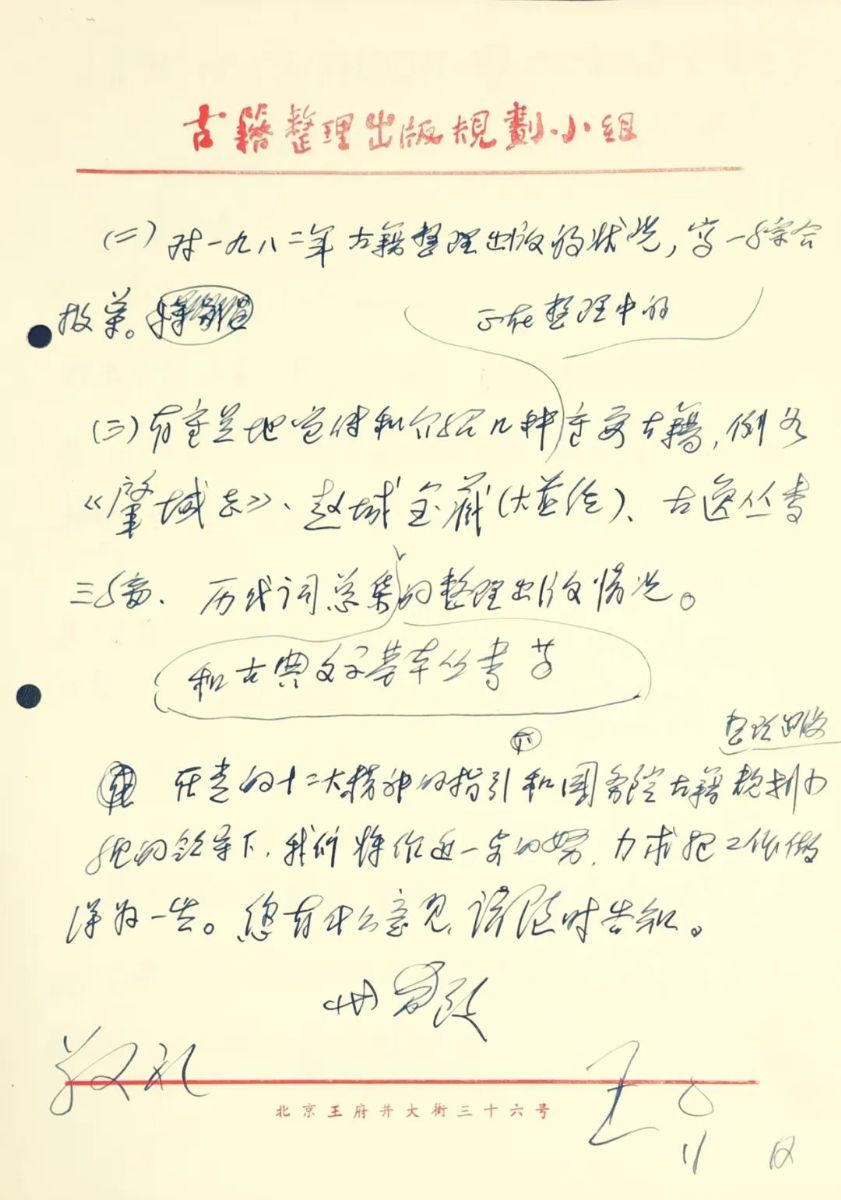 古籍整理出版規劃小组
(二)对一九八二年古籍整理出版的状况,写一综合
报菜。
正在整理中的
(三)有重点地宣传和介绍几种重要古籍,例如
《肇域志》、赵城金藏(大藏经)、古逸丛书
三编、历代词总集的整理出版情况。
和古典文学基本丛书等
整理出版
在党的十二大精神的指引下和国务院古籍规划小
组的领导下,我们将作进一步的努力,力求把工作做
得好一些。您有什么意见,请随时告知。
敬礼
王
11 日
北京王府井大街三十六号